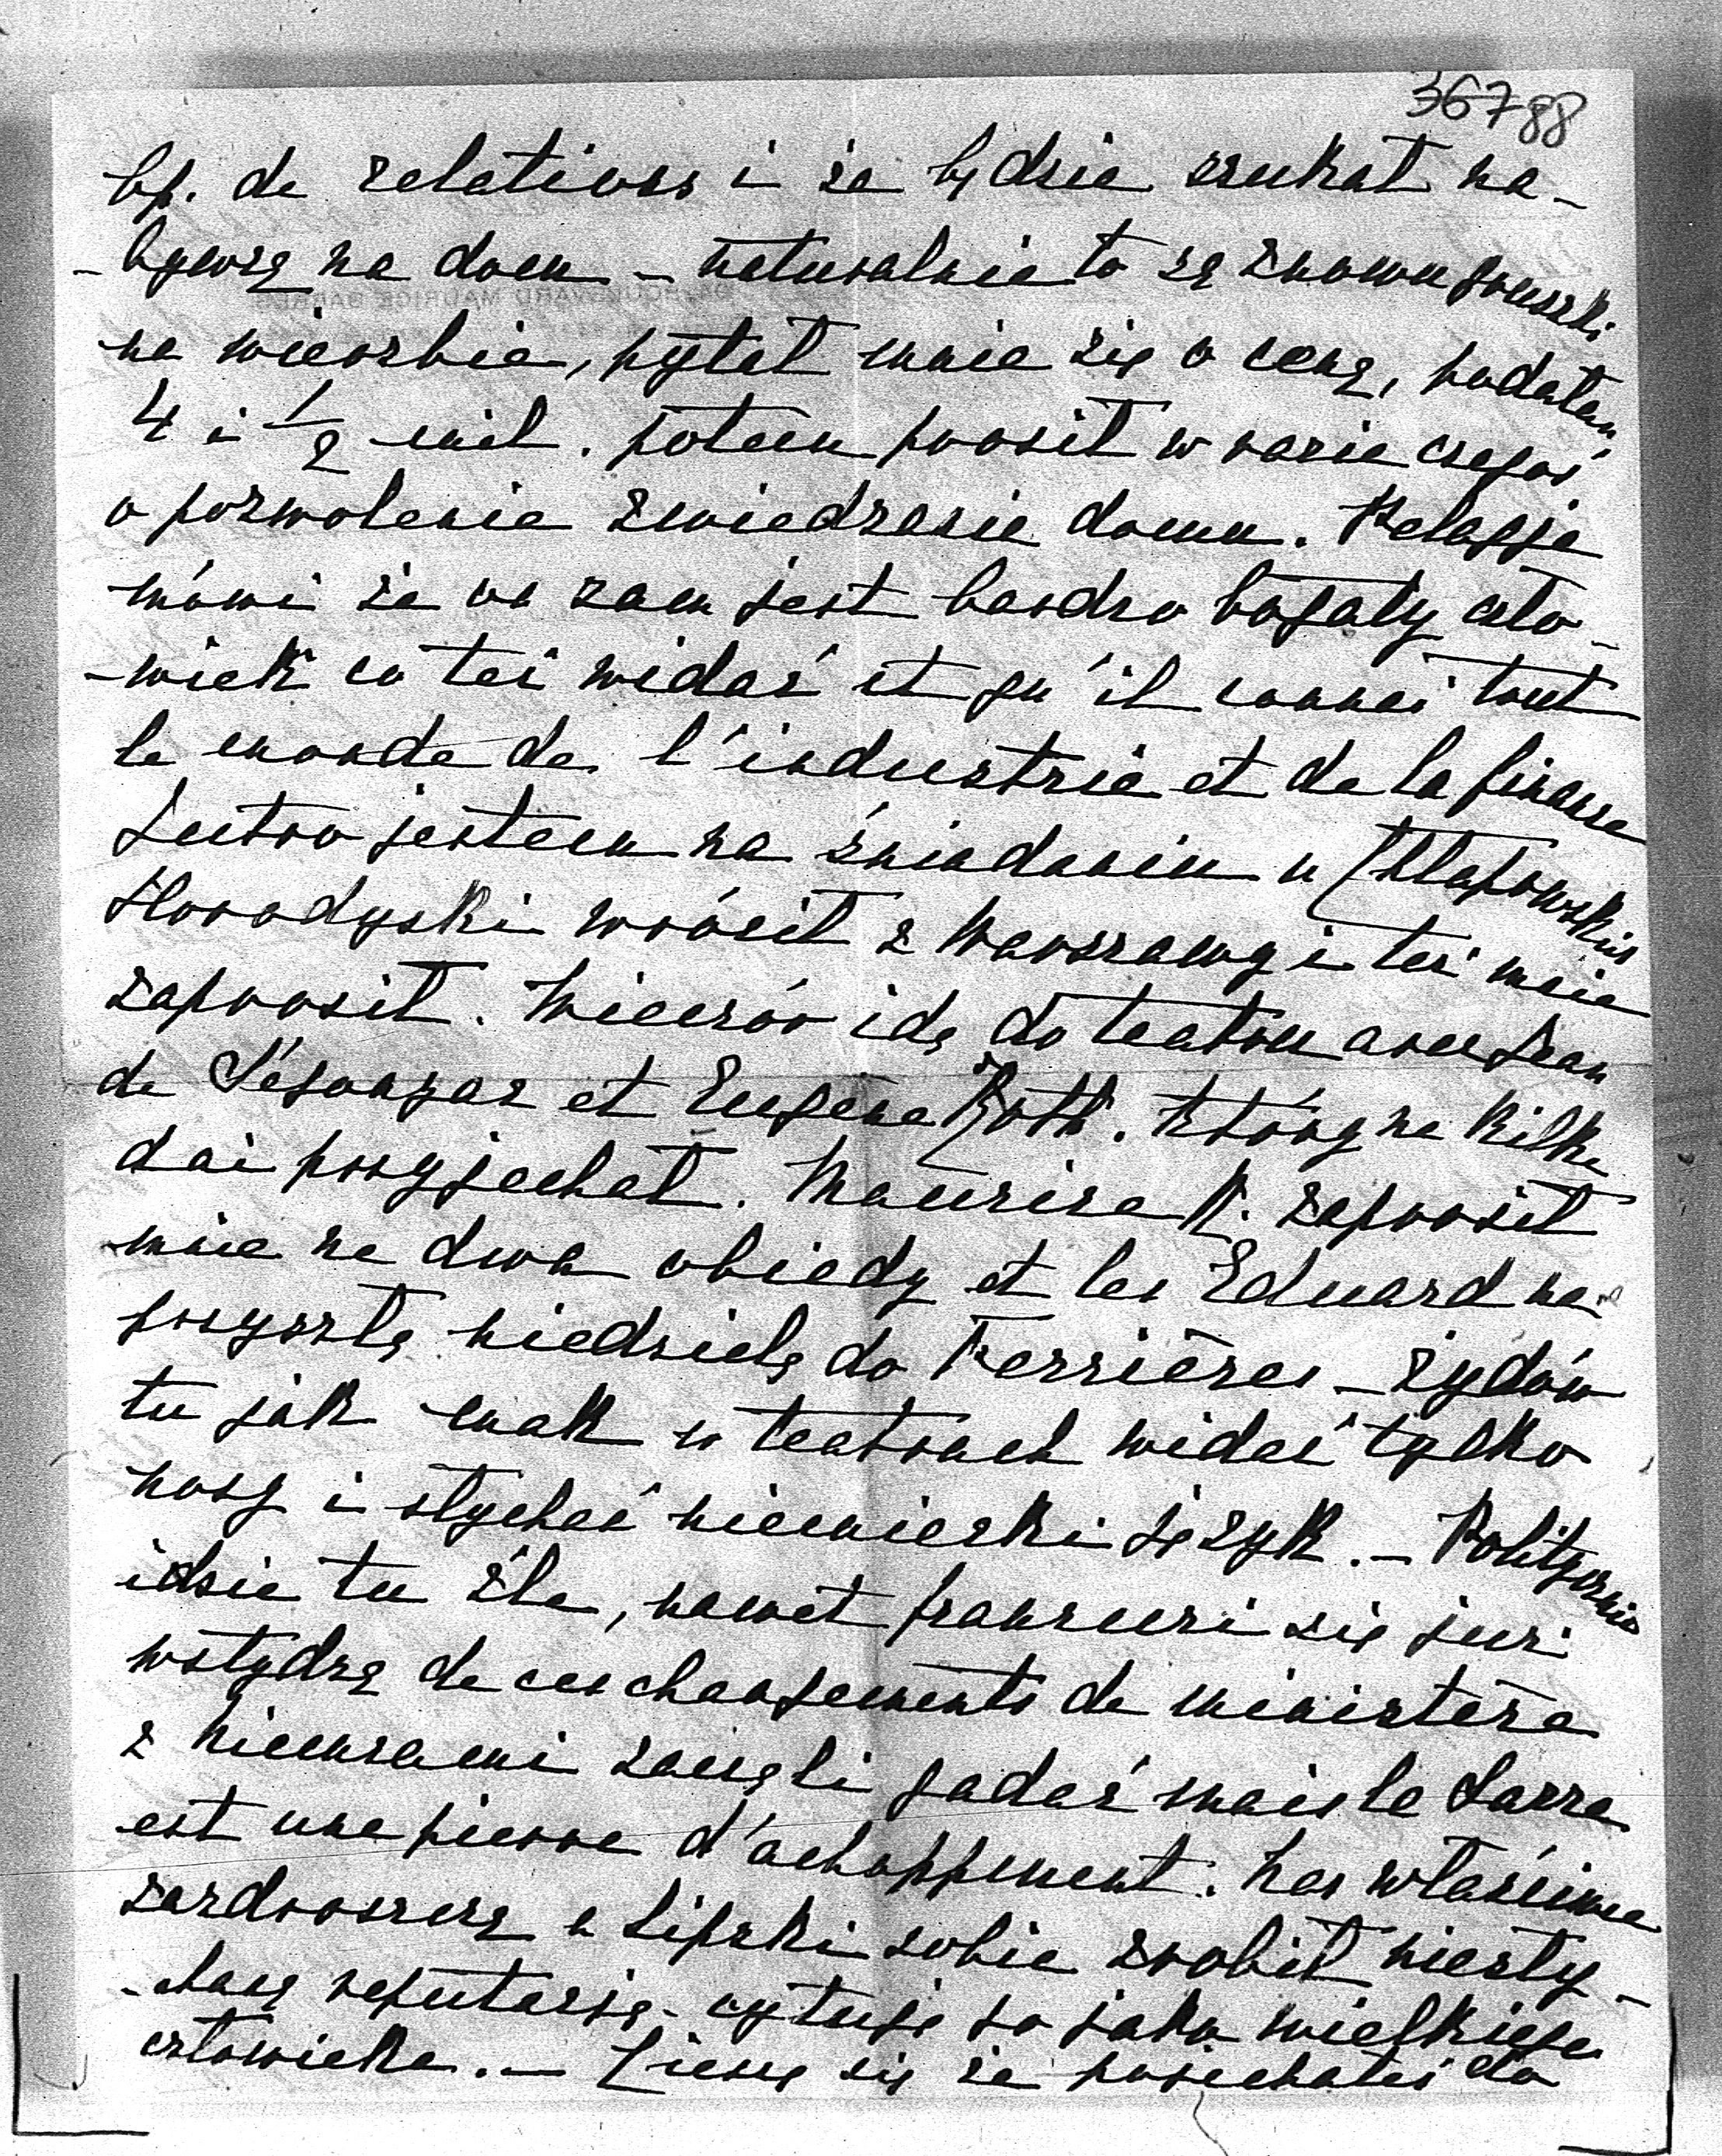 36788
bp. de relations i że będzie szukał na-
-bywcę na dom - naturalnie to są znowu gruszki
na wierzbie, pytał mnie się o cenę, podałam
4 i 1/2 mil. potem prosił w razie czegoś
o pozwolenie zwiedzenie domu. Pelagja
mówi że on sam jest bardzo bogaty czło-
-wiek co też widać et qu'il connai tout
le monde de l'industrie et de la finance
Jutro jestem na śniadaniu u Chłapowskich
Horodyski wrócił z Warszawy i też mnie
zaprosił. Wieczór idę do teatru avec Jean
de Ségonzac et Eugène Roth. który na kilka
dni przyjechał. Maurice R. zaprosił
mnie na dwa obiedy et les Eduard na
przyszłą niedzielę do Ferrières - żydów
tu jak mak w teatrach widać tylko
nosy i słychać niemiecki język. - Politycznie
idzie tu źle, nawet francuzi się już
wstydzą de ces changements de ministère
z niemcami zaczęli gadać mais le Sarre
est une pierre d'achoppement. Nas właściwie
zazdroszczą a Lipski sobie zrobił niesły-
-chaną reputację - cytuję go jako wielkiego
człowieka. - Cieszę się że pojechałeś do